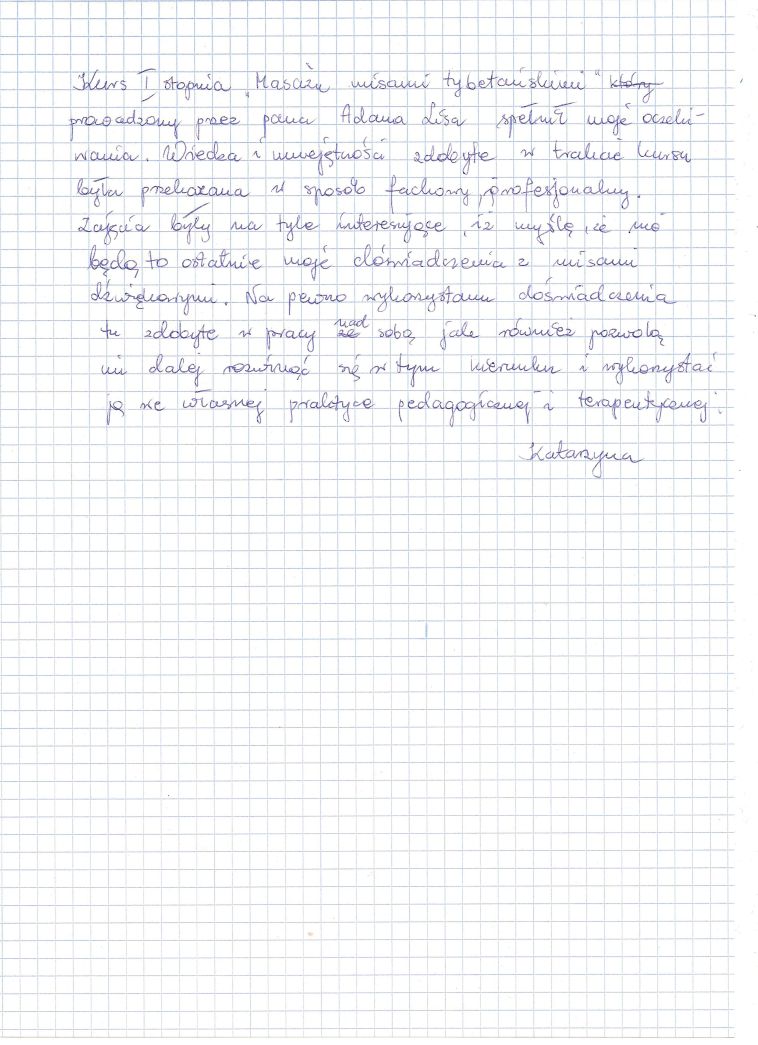 Kurs I stopnia „Masażu misami tybetańskimi" który
prowadzony przez pana Adama Lisa spełnił moje oczeki-
wania. Wiedza i umiejętności zdobyte w trakcie kursu
była przekazana w sposób fachowy, profesjonalny.
Zajęcia były na tyle interesujące, iż myślę, że nie
będą to ostatnie moje doświadczenia z misami
dźwiękowymi. Na pewno wykorzystam doświadczenia
tu zdobyte w pracy nad sobą jak również pozwolą
mi dalej rozwinąć się w tym kierunku i wykorzystać
ją we własnej praktyce pedagogicznej i terapeutycznej.
Katarzyna